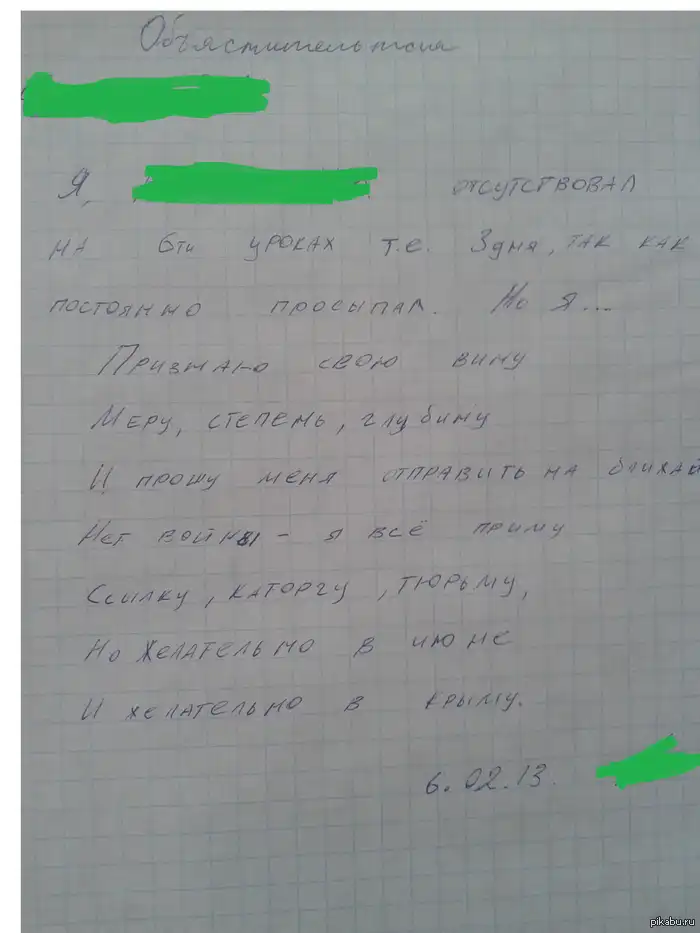 Объяснительная
Я, отсутствовал
на 6ти уроках т.е. 3дня, так как
постоянно просыпал. Но я...
Признаю свою вину
Меру, степень, глубину
И прошу меня отправить на ближай
Нет войны - я всё приму
Ссылку, каторгу, тюрьму,
Но желательно в июне
И желательно в крыму.
6.02.13.
pikabu.ru